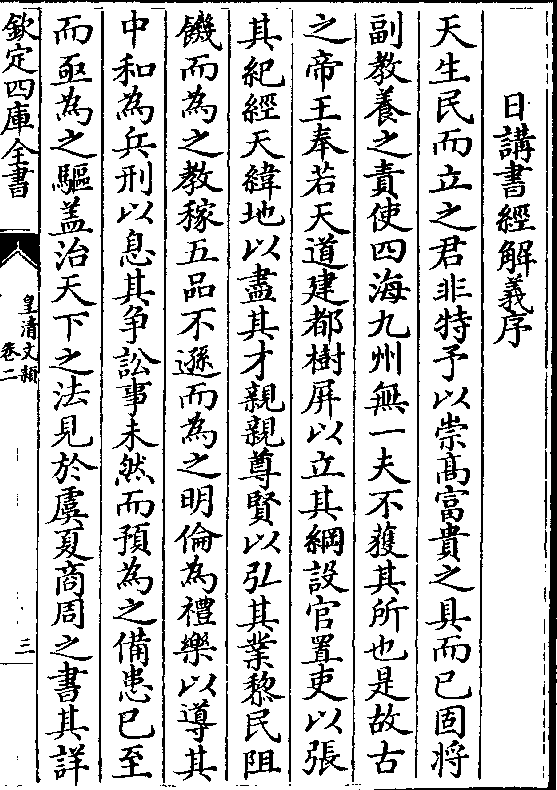 日講書經解義序
天生民而立之君非特予以崇髙富貴之具而已固將
副教養之責使四海九州無一夫不獲其所也是故古
之帝王奉若天道建都樹屏以立其綱設官置吏以張
其紀經天緯地以盡其才親親尊賢以弘其業黎民阻
饑而為之教稼五品不遜而為之明倫為禮樂以導其
中和為兵刑以息其争訟事未然而預為之備患已至
而亟為之驅盖治天下之法見於虞夏商周之書其詳
欽定四庫全書
皇清文穎
卷二
三